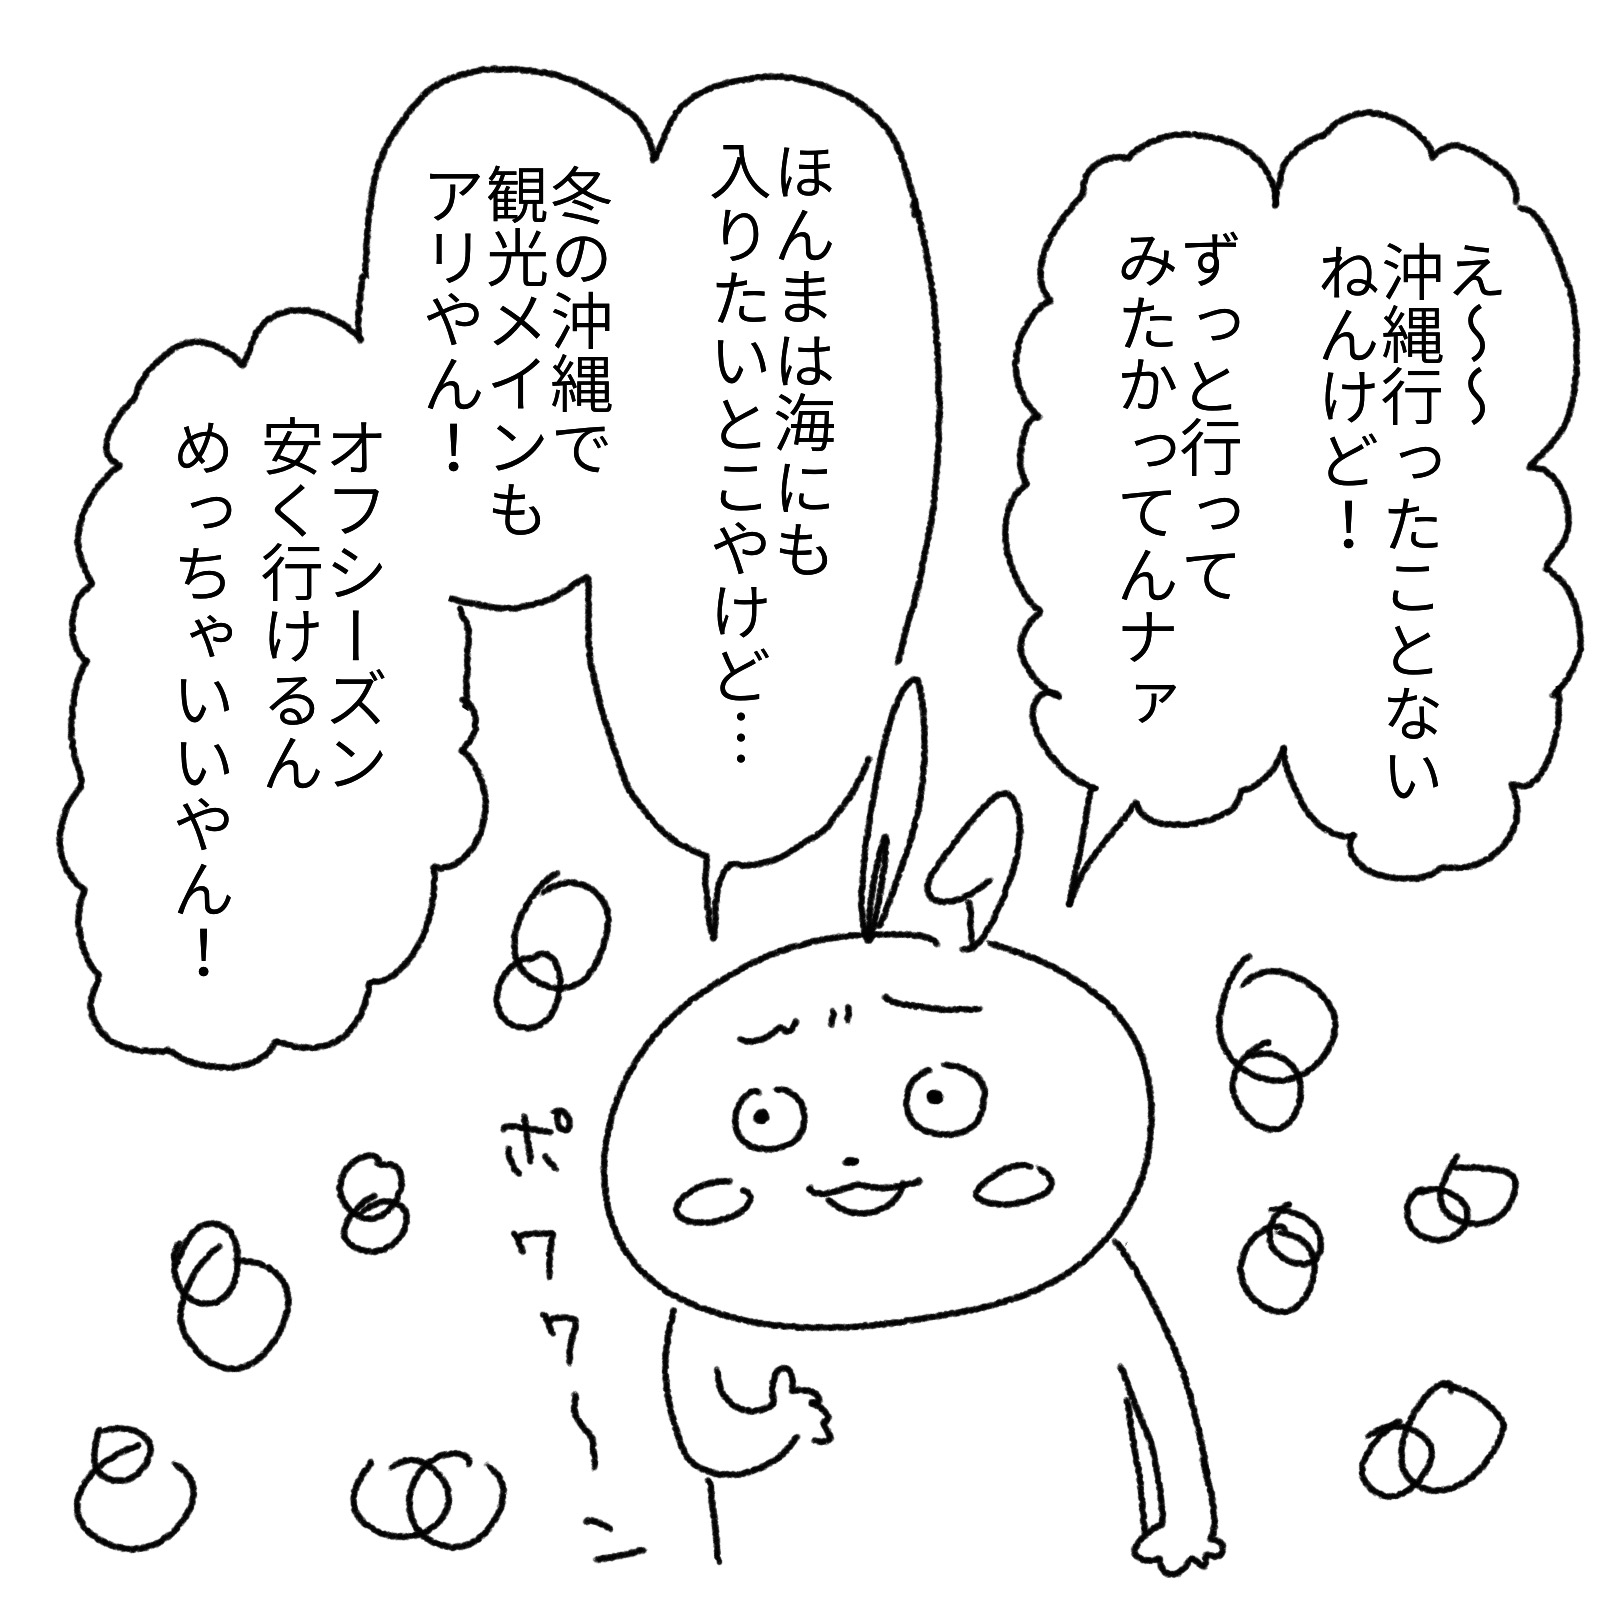 え〜〜
沖縄行ったことない
ねんけど！
ずっと行って
みたかってんナァ
ほんまは海にも
入りたいとこやけど…
冬の沖縄で
観光メインも
アリやん！
オフシーズン
安く行けるん
めっちゃいいやん！
ポワワ〜ン